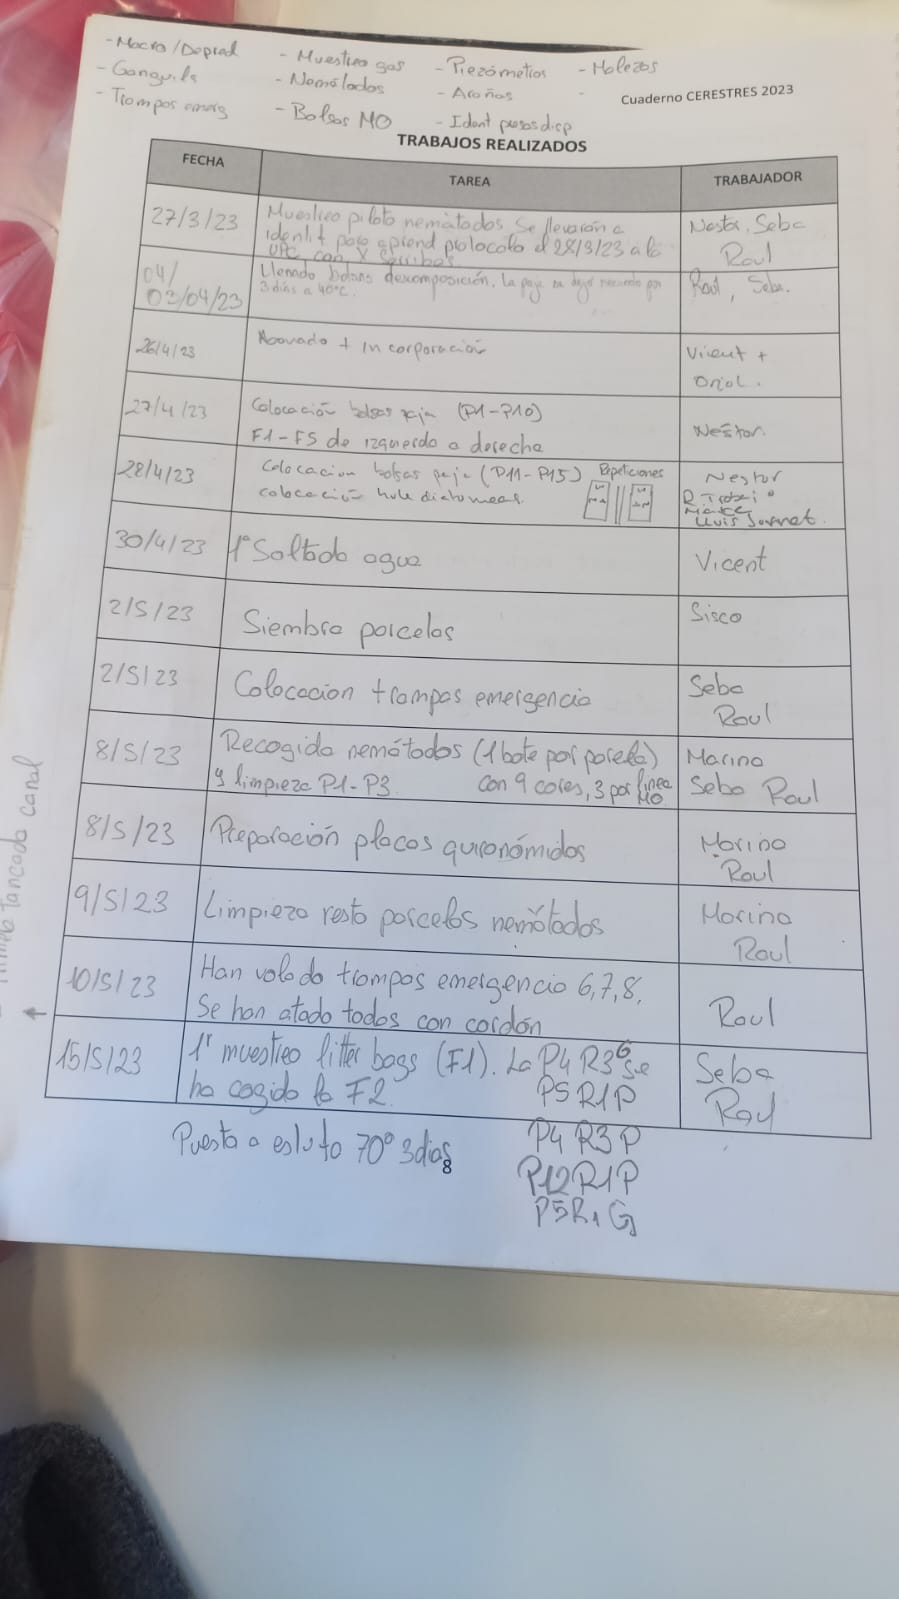 - Macro/Deprad - Muestreo gas - Piezómetros - Malezas
- Ganguils - Nemátodos - Arañas -
- Trampas emerg - Bolsas MO - Ident presas disp
Cuaderno CERESTRES 2023
TRABAJOS REALIZADOS
FECHA TAREA TRABAJADOR
27/3/23 Muestreo piloto nemátodos Se llevarán a Nestor, Seba
identif para aprend protocolo el 28/3/23 a la Raul
UPC con X
04/ Llenado bolsas descomposición. La paja se dejó secando por Raul, Seba.
03/04/23 3 días a 40°C.
26/4/23 Abonado + incorporación Vicent +
Oriol.
27/4/23 Colocación bolsas paja (P1-P10)
F1-F5 de izquerda a derecha Nestor.
28/4/23 Colocacion bolsas paja (P11-P15) Repeticiones Nestor
colocación hule diatomeas.
Lluis Jornet.
30/4/23 1º Soltado agua Vicent
2/5/23 Siembra parcelas Sisco
2/5/23 Colocacion trampas emergencia Seba
Raul
8/5/23 Recogida nemátodos (1 bote por parcela) Marina
y limpieza P1-P3 con 9 cores, 3 por línea Seba Raul
MO
8/5/23 Preparación placas quironómidos Marina
Raul
9/5/23 Limpieza resto parcelas nemátodos Marina
Raul
10/5/23 Han volado trampas emergencia 6,7,8.
Se han atado todas con cordón Raul
15/5/23 1r muestreo litter bags (F1). La P4 R3G se Seba
ha cogido la F2. P5R1P Raul
Puesta a estufa 70º 3dias P4 R3P
8
P12R1P
P5R1G
tancada canal